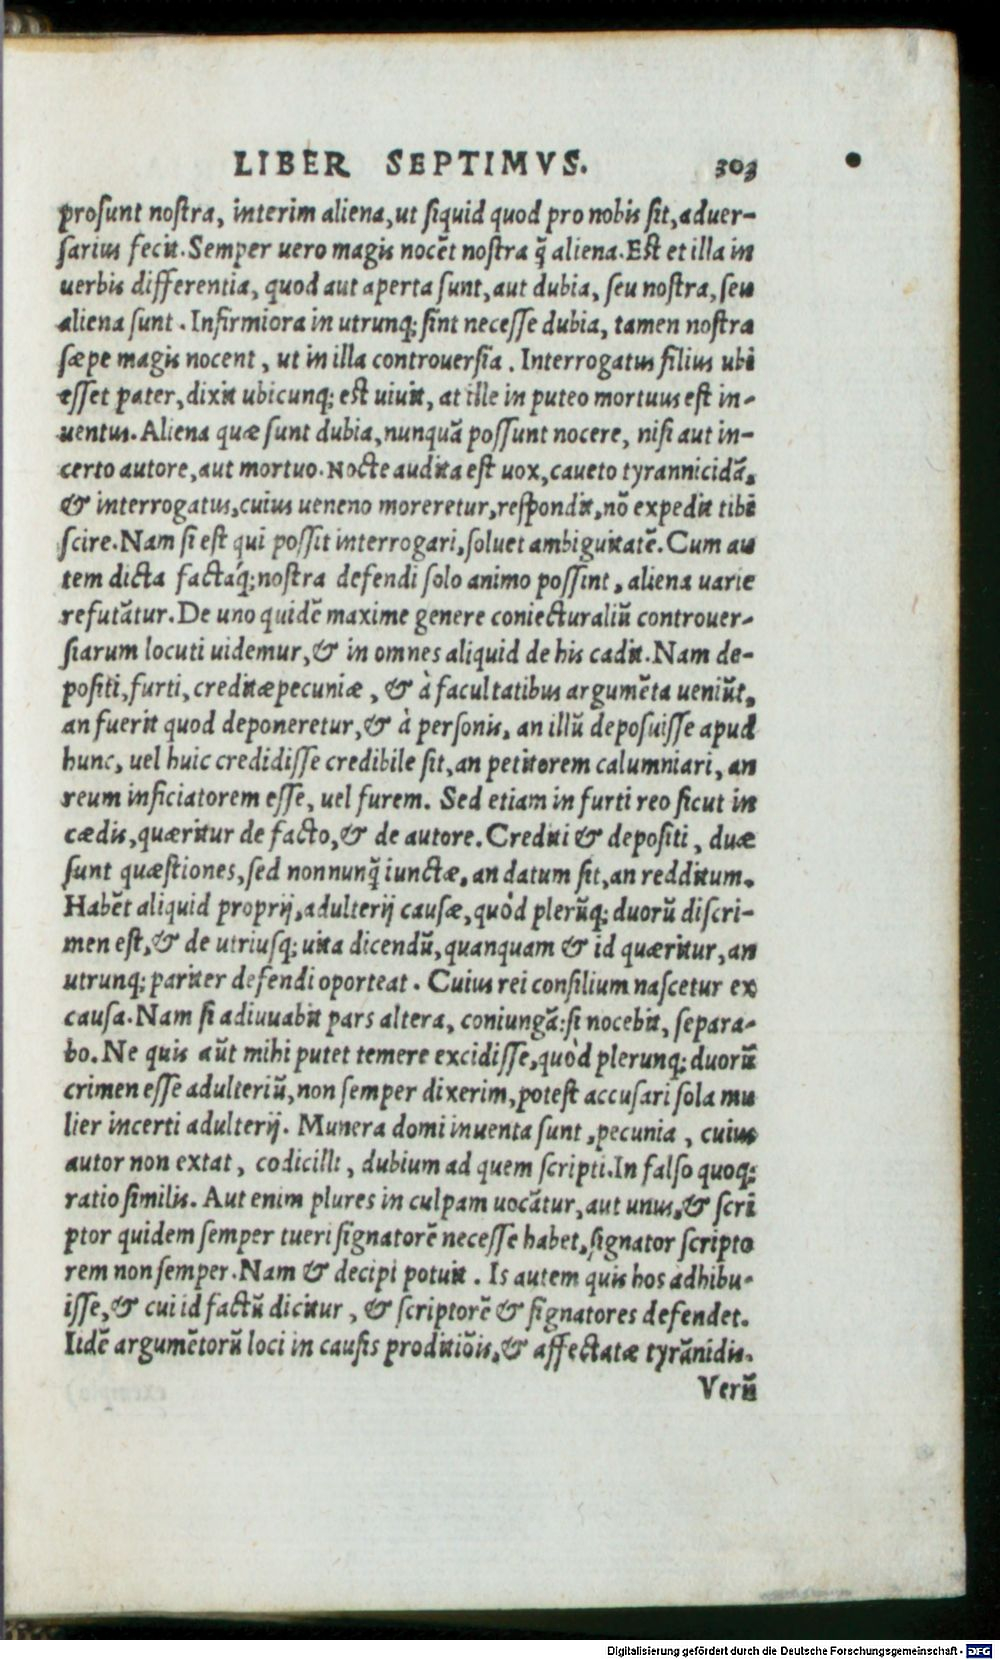 LIBER SEPTIMVS. 303
prosunt nostra, interim aliena, ut siquid quod pro nobis sit, aduer-
sarius fecit. Semper uero magis nocẽt nostra q̃ aliena. Est et illa in
uerbis differentia, quod aut aperta sunt, aut dubia, seu nostra, seu
aliena sunt. Infirmiora in utrunq; sint necesse dubia, tamen nostra
sæpe magis nocent, ut in illa controuersia. Interrogatus filius ubi
esset pater, dixit ubicunq; est uiuit, at ille in puteo mortuus est in-
uentus. Aliena quæ sunt dubia, nunquã possunt nocere, nisi aut in-
certo autore, aut mortuo. Nocte audita est uox, caueto tyrannicidã,
& interrogatus, cuius ueneno moreretur, respondit, nõ expedit tibi
scire. Nam si est qui possit interrogari, soluet ambiguitatẽ. Cum au
tem dicta factáq; nostra defendi solo animo possint, aliena uarie
refutãtur. De uno quidẽ maxime genere coniecturaliũ controuer-
siarum locuti uidemur, & in omnes aliquid de his cadit. Nam de-
positi, furti, creditæ pecuniæ, & à facultatibus argumẽta ueniũt,
an fuerit quod deponeretur, & à personis, an illũ deposuisse apud
hunc, uel huic credidisse credibile sit, an petitorem calumniari, an
reum inficiatorem esse, uel furem. Sed etiam in furti reo sicut in
cædis, quæritur de facto, & de autore. Crediti & depositi, duæ
sunt quæstiones, sed nonnunq̃ iunctæ, an datum sit, an redditum.
Habẽt aliquid proprij, adulterij causæ, quòd plerũq; duorũ discri-
men est, & de utriusq; uita dicendũ, quanquam & id quæritur, an
utrunq; pariter defendi oporteat. Cuius rei consilium nascetur ex
causa. Nam si adiuuabit pars altera, coniungã: si nocebit, separa-
bo. Ne quis aũt mihi putet temere excidisse, quòd plerunq; duorũ
crimen esse adulteriũ, non semper dixerim, potest accusari sola mu
lier incerti adulterij. Munera domi inuenta sunt, pecunia, cuius
autor non extat, codicilli, dubium ad quem scripti. In falso quoq;
ratio similis. Aut enim plures in culpam uocãtur, aut unus, & scri
ptor quidem semper tueri signatorẽ necesse habet, signator scripto
rem non semper. Nam & decipi potuit. Is autem quis hos adhibu-
isse, & cui id factũ dicitur, & scriptorẽ & signatores defendet.
Iidẽ argumẽtorũ loci in causis proditiõis, & affectatæ tyrãnidis.
Verũ
Digitalisierung gefördert durch die Deutsche Forschungsgemeinschaft - DFG